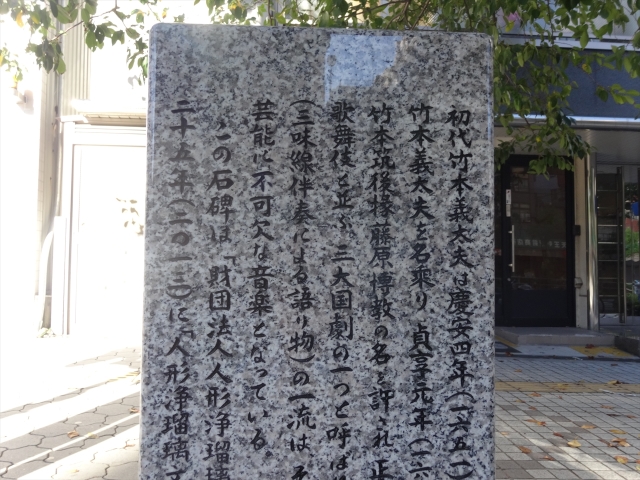 初代竹本義太夫は慶安四年(一六五一)
竹本義太夫を名乗り、貞享元年(一六
竹本筑後掾藤原博教の名を許され、正
歌舞伎と並ぶ、三大国劇の一つと呼ば
(三味線伴奏による語り物)の一流は、そ
芸能に不可欠な音楽となっている。
この石碑は、「財団法人人形浄瑠璃
二十五年(二〇一三)に「人形浄瑠璃文